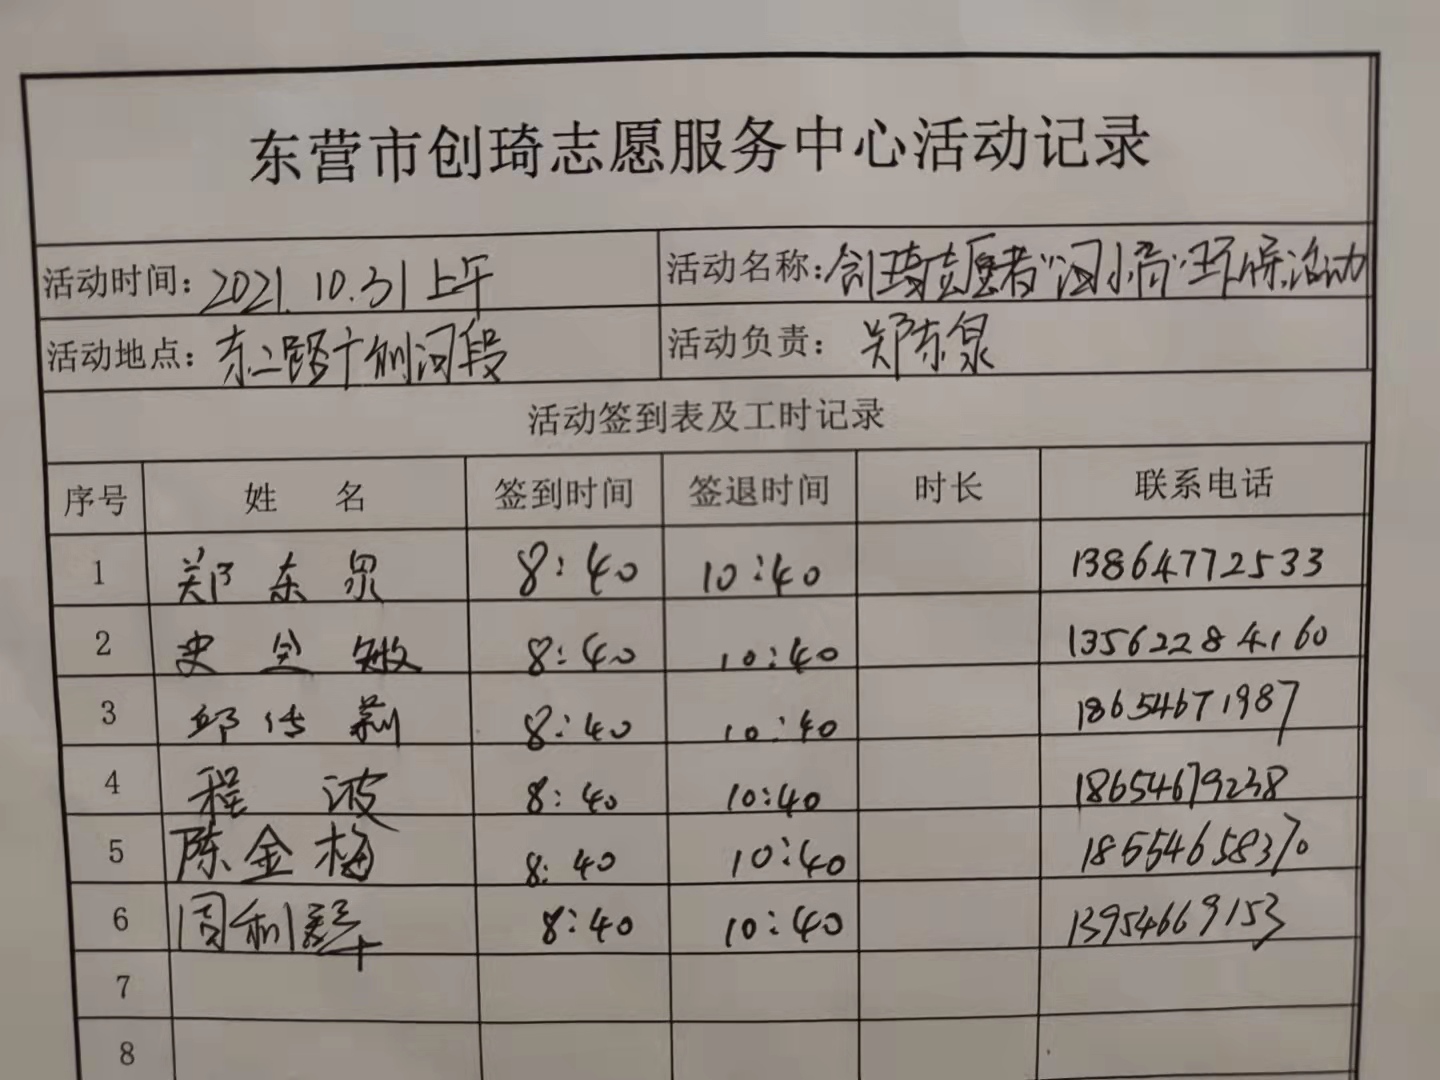 东营市创琦志愿服务中心活动记录
活动时间：2021.10.31上午 活动名称：创琦志愿者"河小青"环保活动
活动地点：东二路广利河段 活动负责：郑东泉
活动签到表及工时记录
序号 姓 名 签到时间 签退时间 时长 联系电话
1 郑东泉 8:40 10:40 13864772533
2 史 敏 8:40 10:40 13562284160
3 邱传莉 8:40 10:40 18654671987
4 程波 8:40 10:40 18654679238
5 陈金梅 8:40 10:40 18654658370
6 周利 8:40 10:40 13954669153
7
8